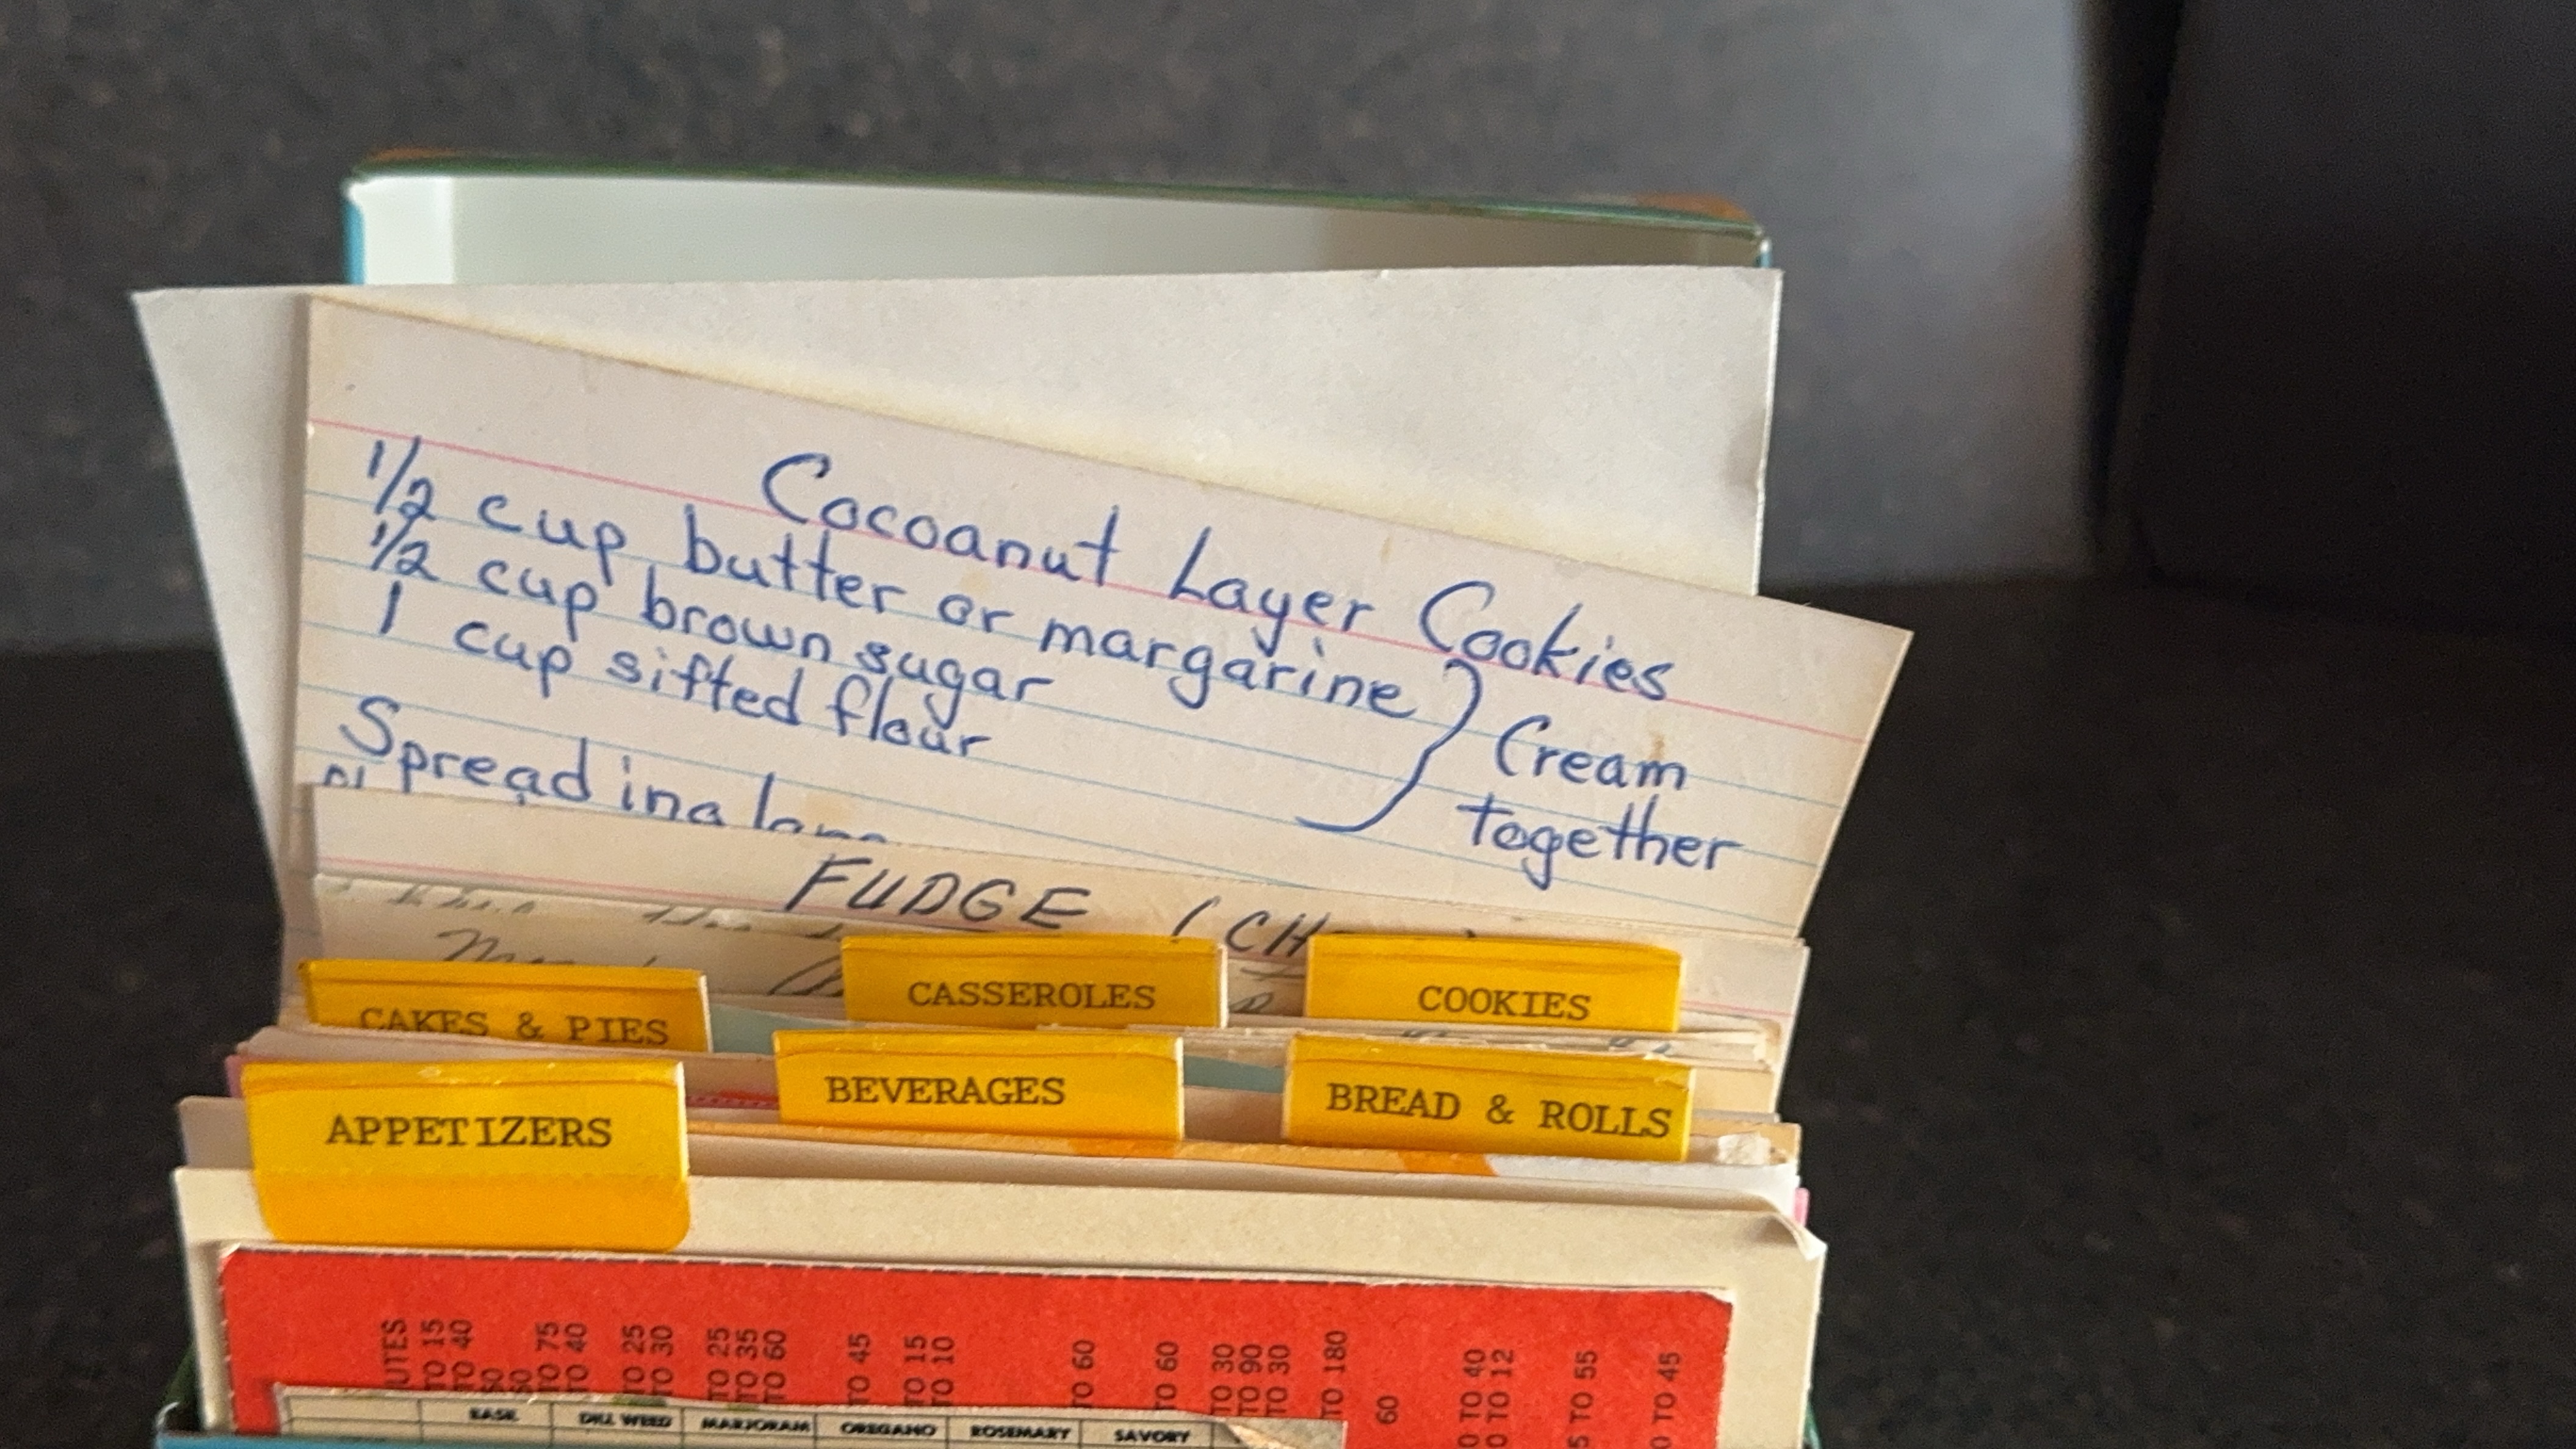 Cocoanut Layer Cookies
1/2 cup butter or margarine
1/2 cup brown sugar
1 cup sifted flour
} Cream
together
Spread in a
FUDGE
CAKES & PIES
CASSEROLES
COOKIES
APPETIZERS
BEVERAGES
BREAD & ROLLS
UTES
TO 15
TO 40
TO 75
TO 40
TO 25
TO 30
TO 25
TO 35
TO 60
TO 45
TO 15
TO 10
TO 60
TO 60
TO 30
TO 90
TO 30
TO 180
60
TO 40
TO 12
5 TO 55
0 TO 45
DILL WEED
MARJORAM
OREGANO
ROSEMARY
SAVORY